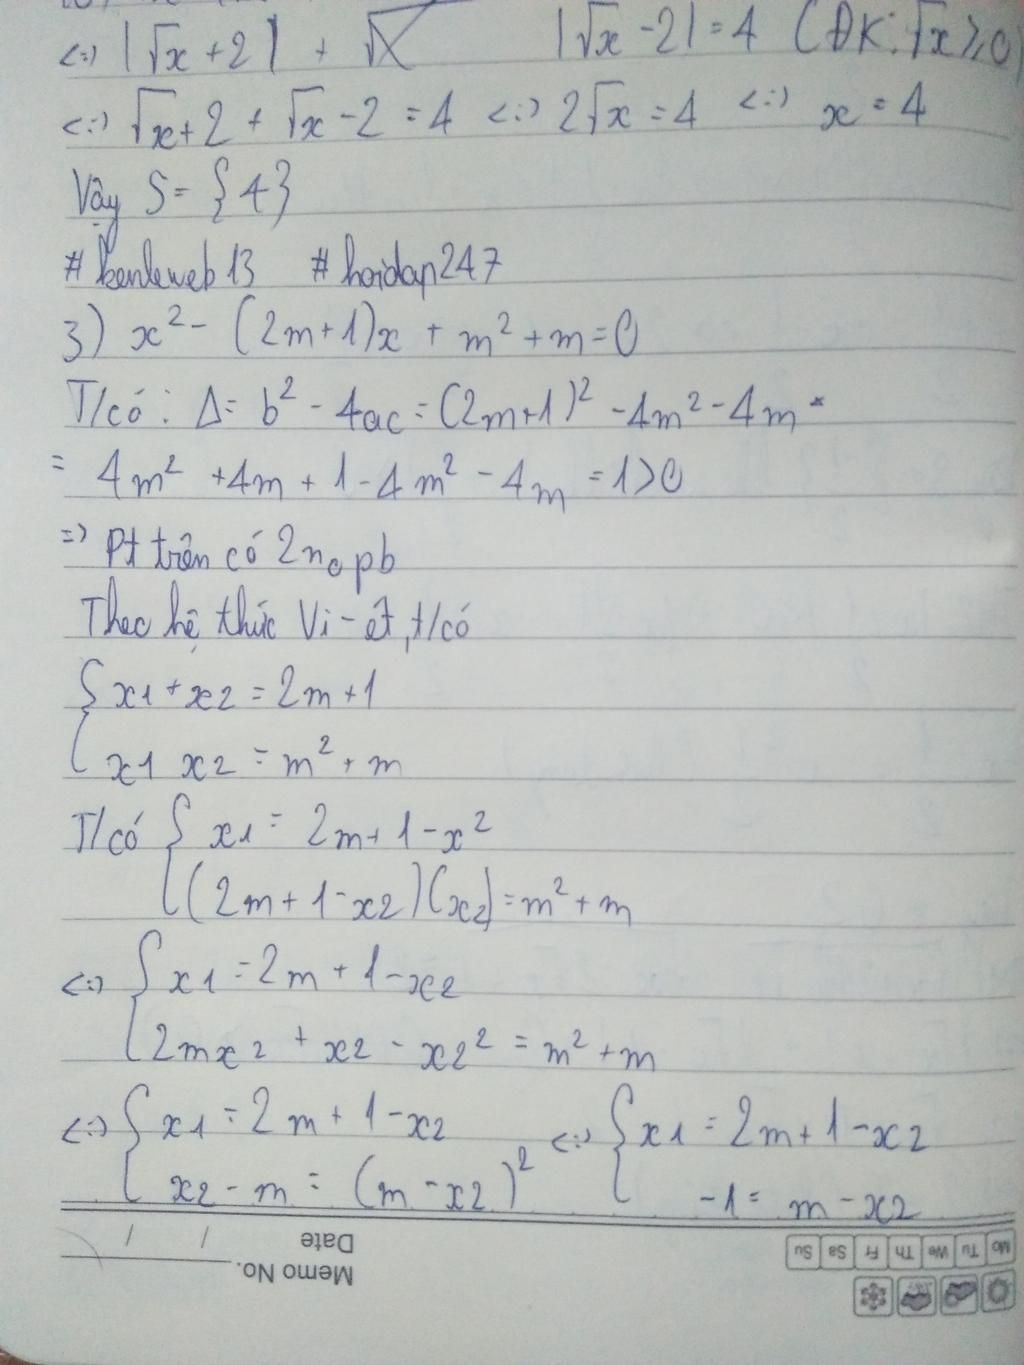 <=> |√x + 2| + √x |√x - 2| = 4 (ĐK: √x ≥ 0)
<=> √x + 2 + √x - 2 = 4 <=> 2√x = 4 <=> x = 4
Vậy S = {4}
#kenleweb13 #hoidap247
3) x² - (2m+1)x + m² + m = 0
T/có: Δ = b² - 4ac = (2m+1)² - 4m² - 4m
= 4m² + 4m + 1 - 4m² - 4m = 1 > 0
=> Pt trên có 2 no pb
Theo hệ thức Vi-ét, t/có
{ x1 + x2 = 2m + 1
x1 x2 = m² + m
T/có { x1 = 2m + 1 - x2
(2m + 1 - x2)(x2) = m² + m
<=> { x1 = 2m + 1 - x2
2mx2 + x2 - x2² = m² + m
<=> { x1 = 2m + 1 - x2 <=> { x1 = 2m + 1 - x2
x2 - m = (m - x2)² -1 = m - x2
Mo Tu We Th Fr Sa Su
Memo No.
Date / /